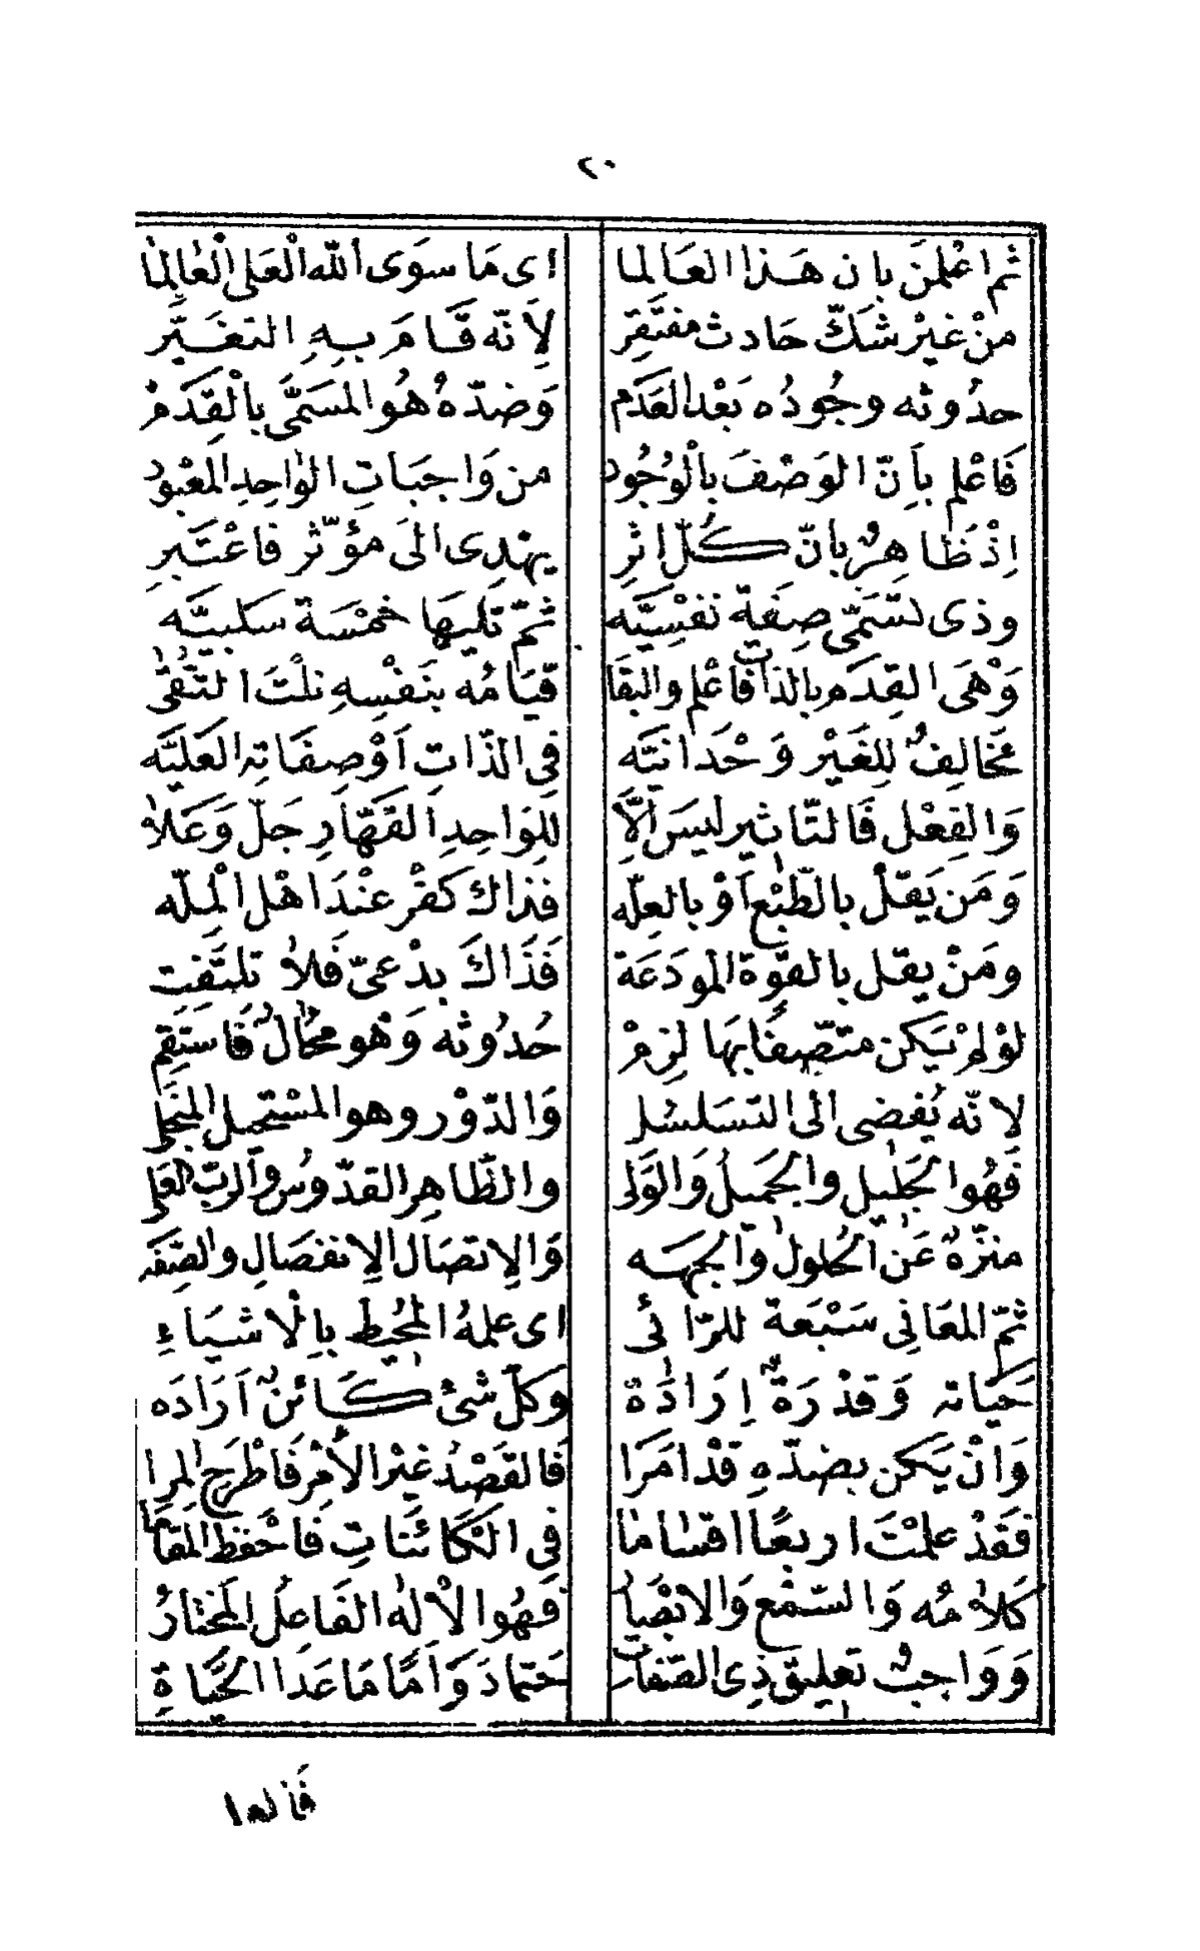 ٢٠
ثم اعْلمَنَ بان هَذا العَالما اى مَا سوَى اللّه الْعَلى الْعَالِمَا
منْ غيْر شكّ حَادث مفتَقِر لِاَنّه قَامَ بِهِ التغَيَّر
حدُوثه وجُودُه بَعْد العَدَم وَضدّهُ هُو المسَمَّى بالْقِدَمْ
فَاعْلم باَنّ الوَصْفَ بالْوُجُود من وَاجبَاتِ الوَاحِدِ المعْبوُد
اِذْ ظَاهِرٌ بانّ كُلّ اثرِ يهْدِى الىَ مؤثّر فاعْتَبرِ
وذى تسَمَّى صِفَة نفسْيَّه ثمّ تَليهَا خمْسَة سَلبيَّه
وَهْىَ القِدَم بالذات فَاعْلم والبقَا قيَامُه بنَفْسِهِ نلْتَ التّقىَ
مخَالِفٌ لِلغَيْر وَحْدَانيَّه فِي الذّاتِ اَوْ صِفَاتِه العَليَّه
وَالفِعْل فَالتّاثير ليسَ اِلَّا للِوَاحِدِ القَهّارِ جَلّ وَعَلا
وَمَن يَقلْ بالطّبْع اَوْ بالعِلّه فذاك كفْر عنْدَ اهْل الْمِلّه
ومَنْ يقل بالقوّة الموُدَعَة فَذَاكَ بدْعىّ فَلا تلتَفت
لوْ لمْ يَكن متّصِفًا بهَا لزمْ حُدُوثه وَهْو محَالٌ فَاستَقِم
لانّه يُفضى الى التسَلسُل وَالدّوْر وهو المسْتحيل المنجَلى
فَهُوا لجَليل والجَميلُ وَالوَلى والظّاهِر القدّوُس والرّب العَلى
منزّهٌ عَن الحُلول وَالجهَه وَالاِتصَال الاِنفصَالِ والصِّفَه
ثمّ المعَانى سَبْعَة للرّائى اى علمهُ المحُيط بِالْاشيَاءِ
حَيَاته وَقدْرَةٌ اِرَادَة وكلّ شئ كَائنٌ اَرَادَه
وَانْ يَكن بضدّهِ قدْ امَرَا فَالقصْدُ غيْر الأمْر فَاطْرَح المِرا
فقَدْ علمْتَ اربعًا اقسَامَا فِي الكَائنَاتِ فَاحْفظ المقَامَا
كَلامُه وَالسّمْع وَالابْصَار فَهُوا لْالهُ الفَاعِل المخْتارُ
وَوَاجبٌ تعليق ذِى الصّفات حَتمًا دَوَامًا مَا عَدَا الحيَاةِ
فَالعا